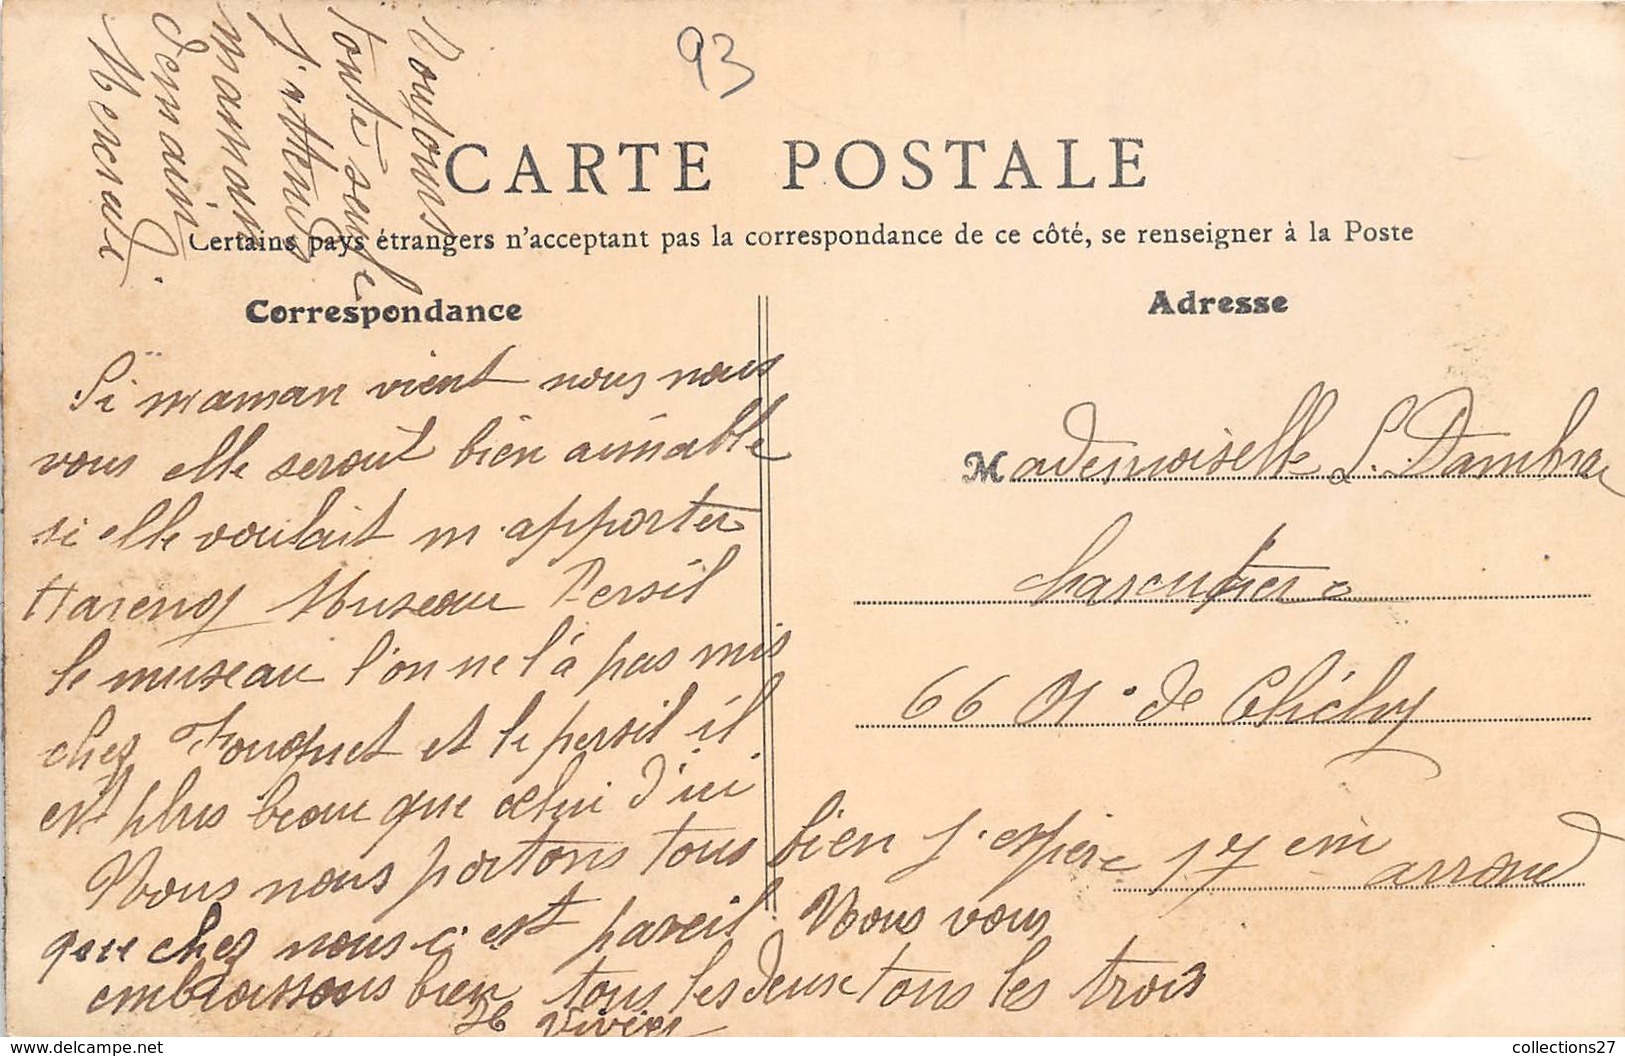 93
Toujours
toute seule
J'attends
maman
demain
Mercredi.
CARTE POSTALE
Certains pays étrangers n'acceptant pas la correspondance de ce côté, se renseigner à la Poste
Correspondance
Si maman vient nous nous
vous elle serait bien aimable
si elle voulait m'apporter
Hareng Museau Persil
le museau l'on ne l'a pas mis
chez Fouquet et le persil il
est plus beau que celui d'ici
Nous nous portons tous bien j'espère
que chez nous c'est pareil. Nous vous
embrassons bien tous les deux tous les trois
Vivier
Adresse
Mademoiselle L. Dambra
charcutière
66 A. de Clichy
17 em arrond
collections27